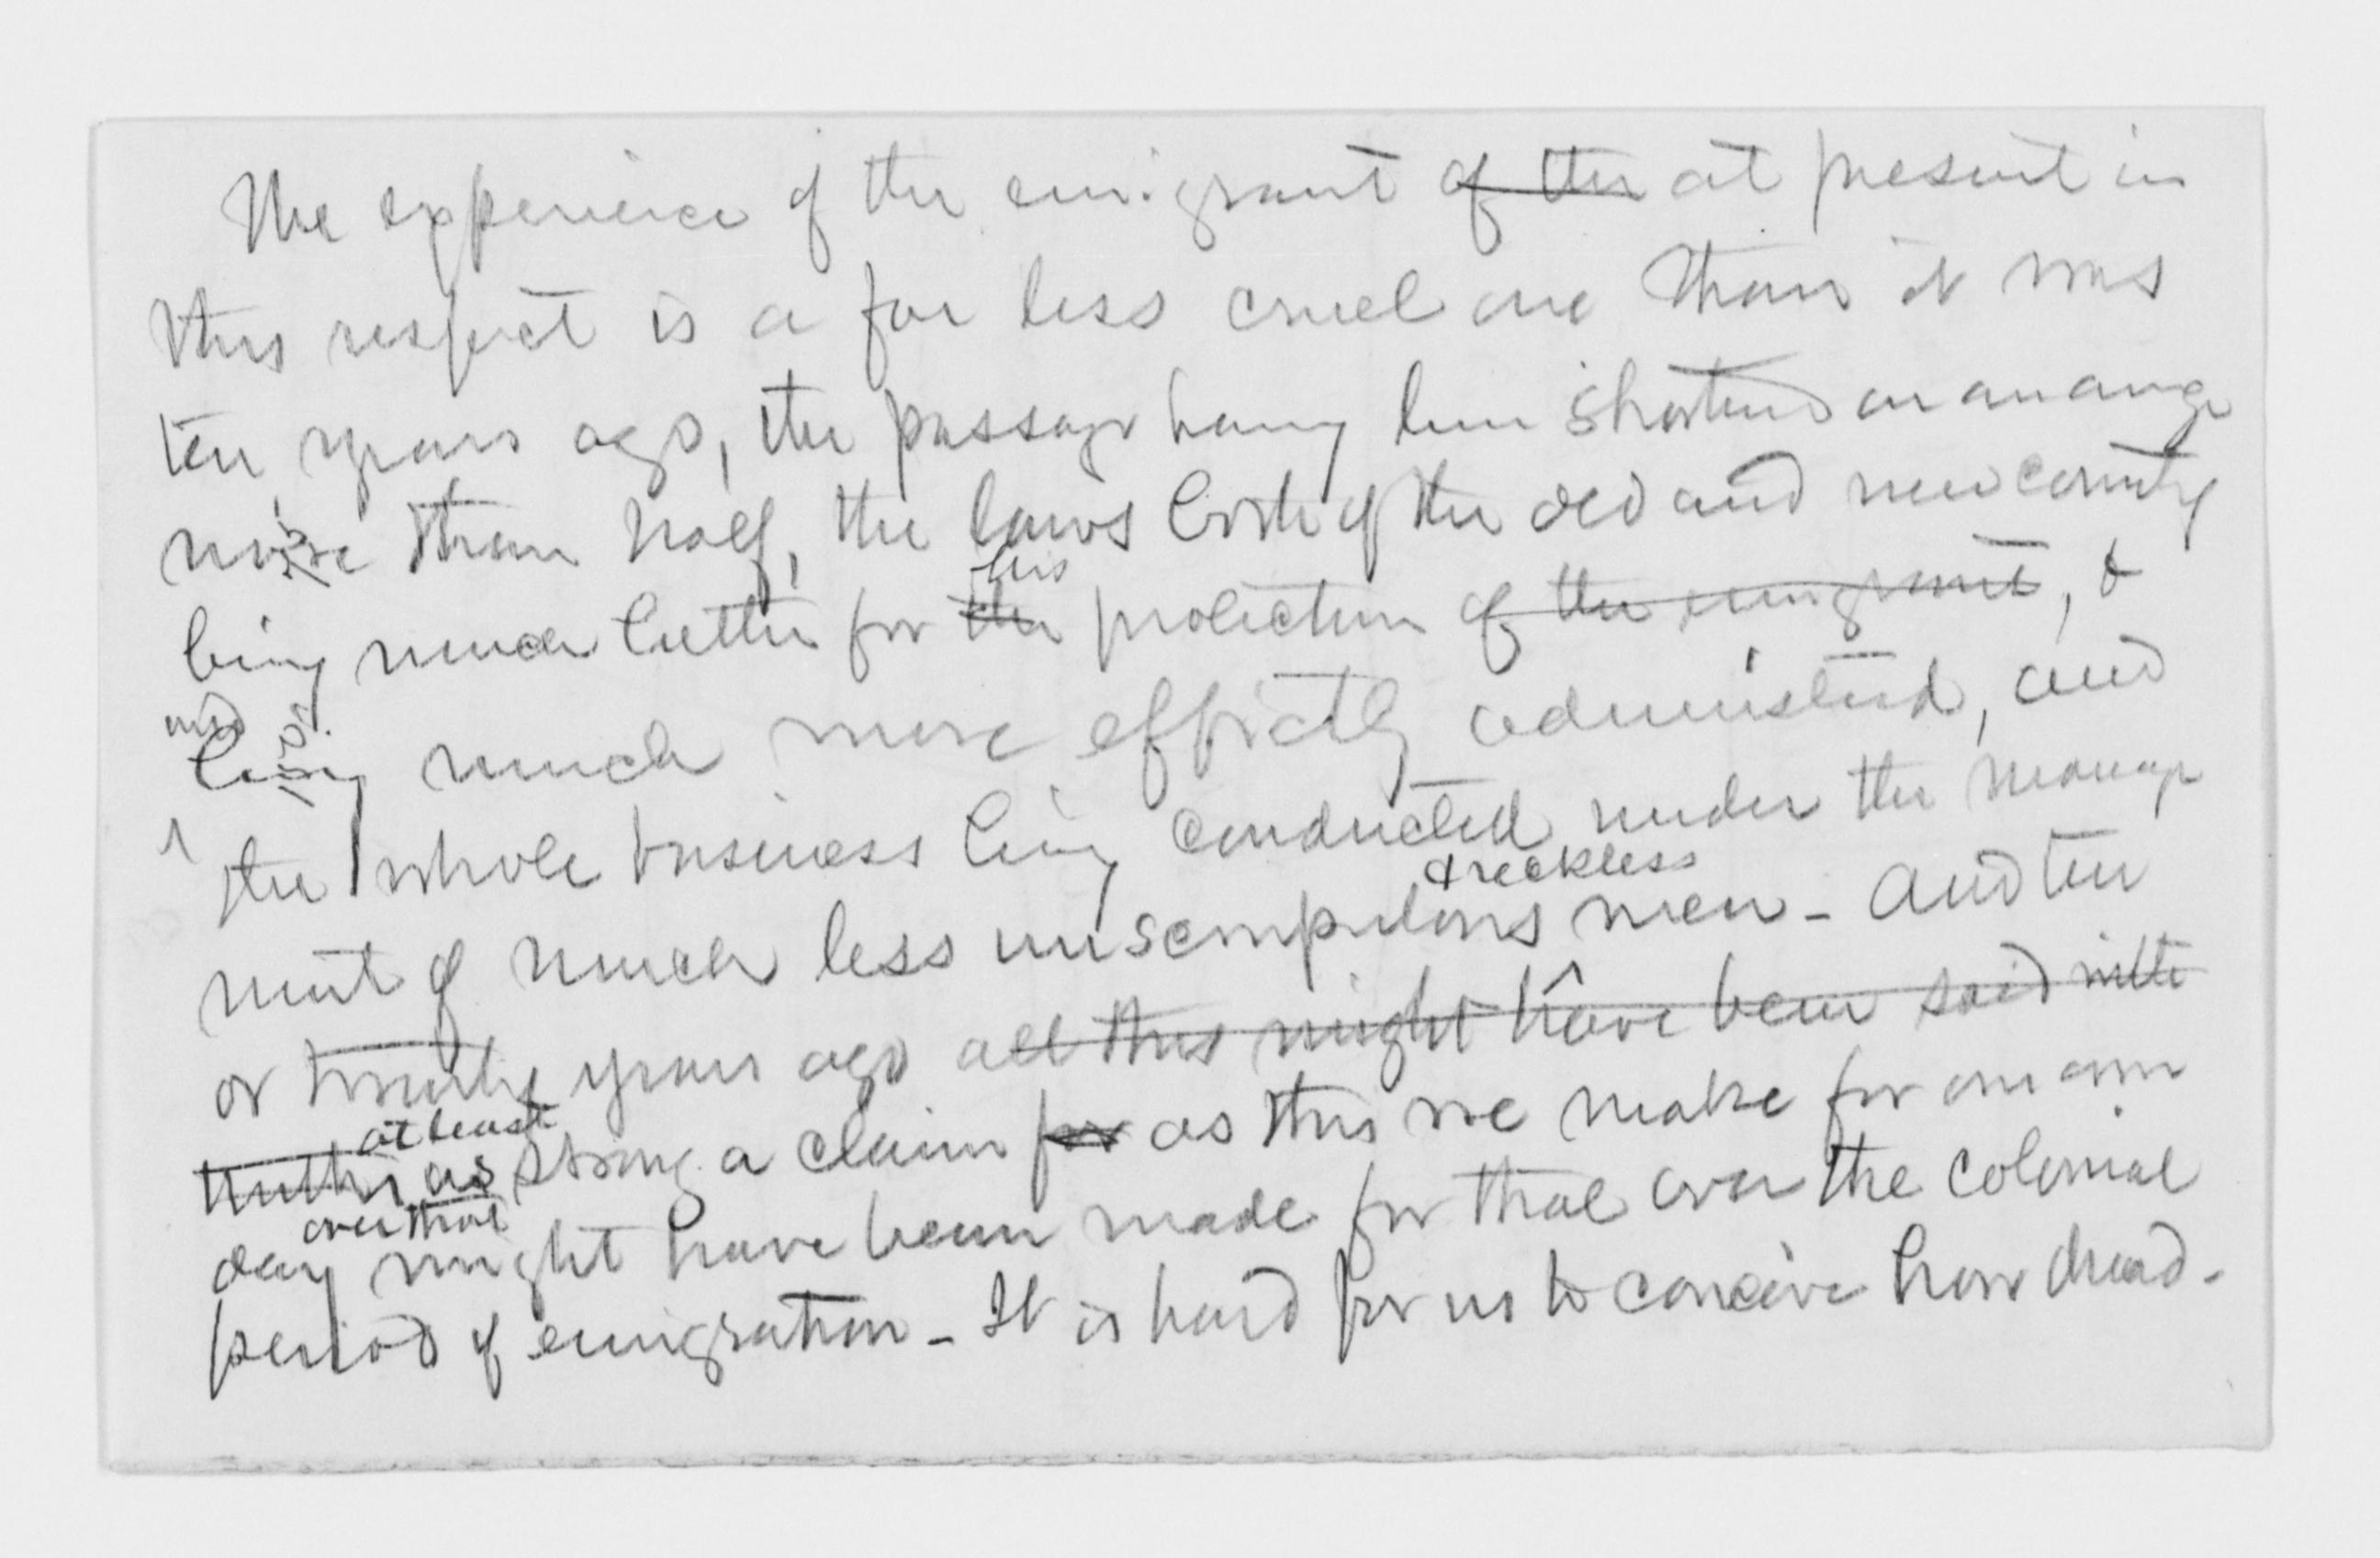 The experience of the emigrant of the at present in
this respect is a far less cruel one than it was
ten years ago, the passage having been shortened on an average
more than half, the laws both of the old and new country
his
being much better for the protection of the emigrant, &
and
being much more effectly administered, and
the whole business being conducted under the manage
& reckless
ment of much less unscrupulous men - and ten
or twenty years ago all this might have been said with
at least
truth as strong a claim for as this we make for our own
over that
day might have been made for that over the colonial
period of emigration - It is hard for us to conceive how dread-